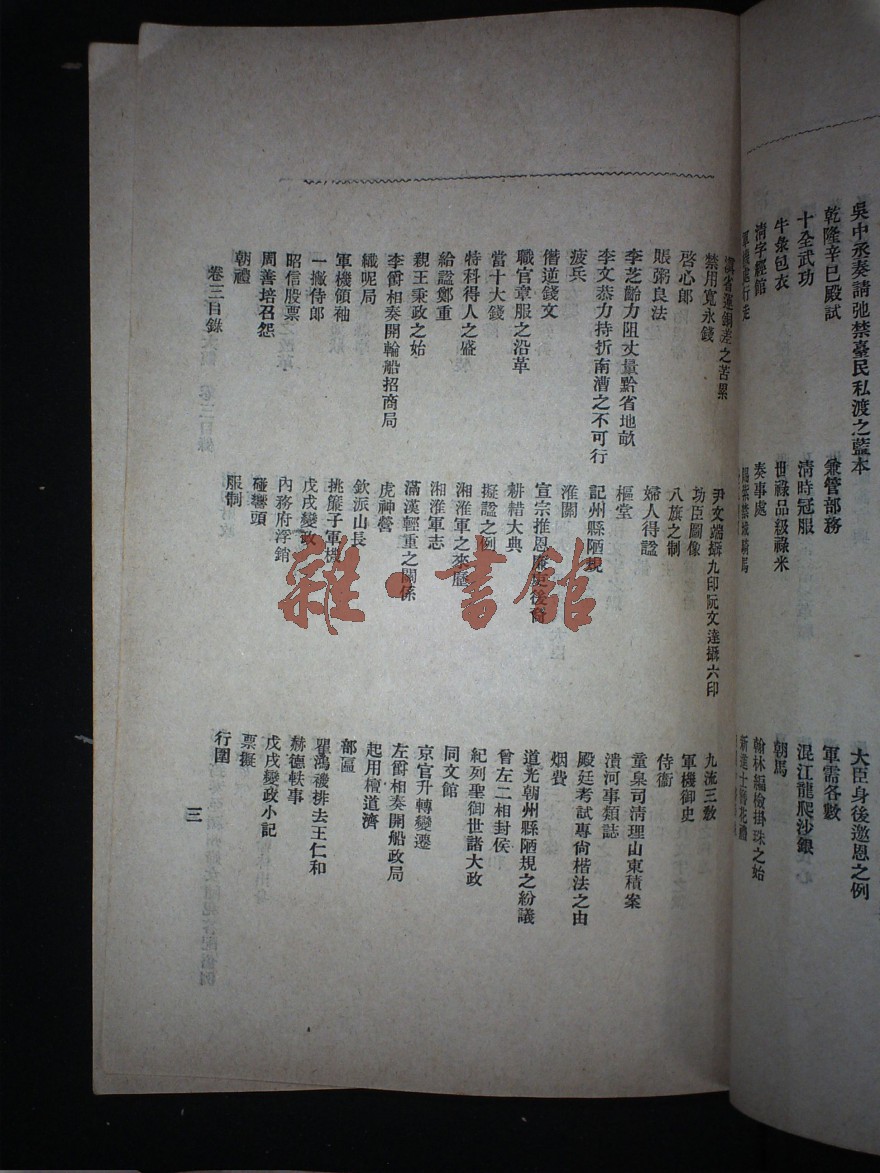 吳中丞奏請弛禁臺民私渡之藍本
兼管部務
大臣身後邀恩之例
乾隆辛巳殿試
清時冠服
軍需各數
十全武功
世祿品級祿米
混江龍爬沙銀
牛彔包衣
奏事處
朝馬
清字經館
賜紫禁城騎馬
翰林編檢掛珠之始
軍機處行走
滇省運銅差之苦累
尹文端攝九印阮文達攝六印
九流三教
禁用寬永錢
功臣圖像
軍機御史
啓心郎
八旗之制
侍衞
賬粥良法
婦人得諡
童泉司清理山東積案
李芝齡力阻丈量黔省地畝
樞堂
濆河事類誌
李文恭力持折南漕之不可行
記州縣陋規
殿廷考試專尙楷法之由
疲兵
淮關
烟費
僭逆錢文
宣宗推恩廉吏後裔
道光朝州縣陋規之紛議
職官章服之沿革
耕耤大典
曾左二相封侯
當十大錢
擬諡之例
紀列聖御世諸大政
特科得人之盛
湘淮軍之來歷
同文館
給諡鄭重
湘淮軍志
京官升轉變遷
親王秉政之始
滿漢輕重之關係
左爵相奏開船政局
李爵相奏開輪船招商局
虎神營
起用檀道濟
織呢局
欽派山長
部區
軍機領袖
挑簾子軍機
瞿鴻禨排去王仁和
一撇侍郎
戊戌變政
赫德軼事
昭信股票
內務府浮銷
戊戌變政小記
周善培召怨
碰響頭
票擬
朝禮
服制
行圍
卷三目錄
三
雜·書館